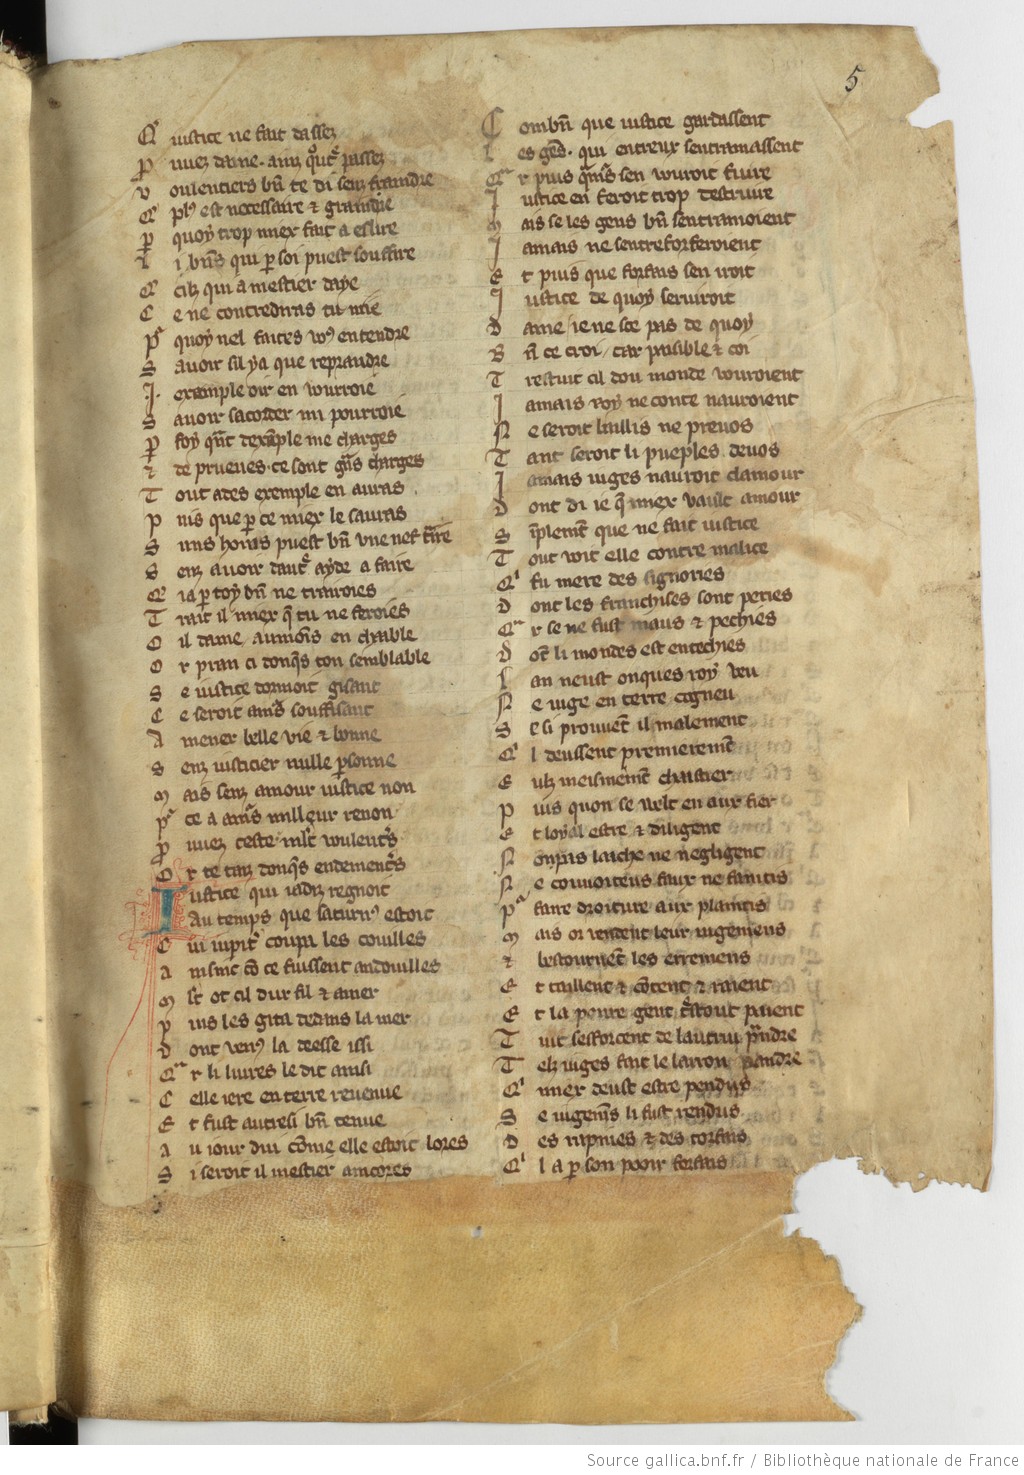 5
Q iustice ne fait dassez
P ruuez dame . ainz q̃ outr̃ passez
V oulentiers bn̄ te di senz fraindre
Q pl᷒ est necessaire ⁊ graindre
P ꝑ quoy trop miex fait a eslire
L i biēs qui ꝑ soi puest souffire
Q cilz qui a mestier daye
C e ne contrediras tu mie
P quoy nel faites vo᷒ entendre
S auoir sil ya que reprandre
J . exemple oir en vourroie
S auoir sacorder mi pourroie
P foy qñt dexāple me charges
⁊ de prueues . ce sont gñs charges
T out ades exemple en auras
P uis que ꝑ ce miex le sauras
S uns homs puest bn̄ vne nef t̃ire
S enz auoir dautr̃ ayde a faire
Q ia ꝑ toy bn̄ ne trairoies
T rait il miex q̃ tu ne feroies
O il dame aumoīs en chable
O r pran ci donq̃s ton semblable
S e iustice dormoit gisant
C e seroit am᷒s souffisant
A mener belle vie ⁊ bonne
S enz iusticier nulle ꝑsonne
M ais senz amour iustice non
P ce a am᷒s meilleur renon
P ruuez ceste mlt̄ voulent̃s
O r te taiz donq̃s endement̃s
Iustice qui iadiz regnoit
Au temps que saturn᷒ estoit
C ui iupit̃ coupa les couilles
A insinc cō ce fussent andouilles
M lt̄ ot cil dur fil ⁊ amer
P uis les gita dedans la mer
D ont ven᷒ la deesse issi
Q r li liures le dit ainsi
C elle iere en terre reuenue
E t fust autresi bn̄ tenue
A u iour dui cōme elle estoit lores
S i seroit il mestier ancores
C ombn̄ que iustice gardassent
L es gēs . qui entreux sentramassent
Q r puis q̃ maīs sen vouroit fuire
I ustice en feroit trop destruire
M ais se les gens bn̄ sentramoient
J amais ne sentreforferoient
E t puis que forfais sen iroit
J ustice de quoy seruiroit
D ame ie ne sce pas de quoy
B n̄ te croi . car paisible ⁊ coi
T restuit cil dou monde vouroient
J amais roy ne conte nauroient
N e seroit baillis ne preuos
T ant seroit li pueples deuos
J amais iuges nauroit clamour
D ont di ie q̃ miex vault amour
S īplemēt que ne fait iustice
T out voit elle contre malice
Q fu mere des signories
D ont les franchises sont peries
Q r se ne fust maus ⁊ pechies
D ōt li mondes est entechies
L an neust onques roy veu
N e iuge en terre cogneu
S e si prouuēt il malement
Q l deussent premieremēt
E ulz meismemēt chastier
P uis quon se uelt en aux fier
E t loyal estre ⁊ diligent
N onpas laiche ne negligent
N e couuoiteus faux ne faintis
P faire droiture aux plaintis
M ais or vendent leur iugemens
⁊ bestournēt les erremens
E t taillent ⁊ cōtent ⁊ raient
E t la peure gent t̃stout paient
T uit sesforcent de lautrui p̃ndre
T elz iuges fait le larron pandre
Q miex deust estre pendus
S e iugem̃s li fust rendus
D es rapines ⁊ des torfais
Q l a ꝑ son pooir forfais
Source gallica.bnf.fr / Bibliothèque nationale de France